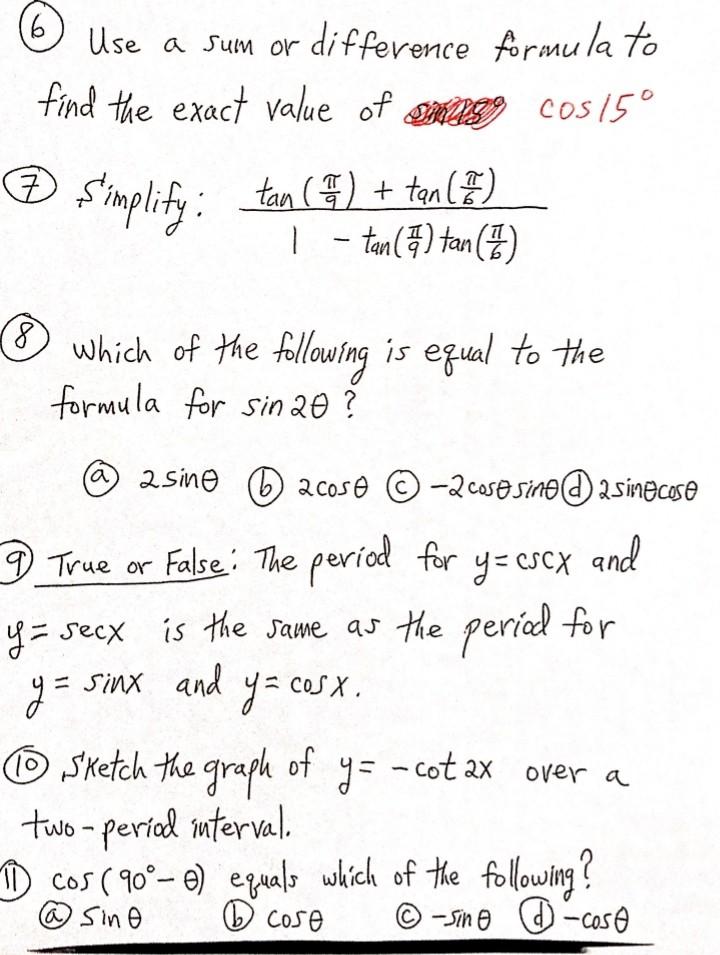 ⑥ Use a sum or difference formula to
find the exact value of cos 15°
⑦ Simplify: (tan(π/9) + tan(π/6)) / (1 - tan(π/9) tan(π/6))
⑧ Which of the following is equal to the
formula for sin 2θ ?
ⓐ 2 sinθ ⓑ 2 cosθ ⓒ -2 cosθ sinθ ⓓ 2 sinθ cosθ
⑨ True or False: The period for y = cscx and
y = secx is the same as the period for
y = sinx and y = cosx.
⑩ Sketch the graph of y = -cot 2x over a
two-period interval.
⑪ cos(90°-θ) equals which of the following?
ⓐ sinθ ⓑ cosθ ⓒ -sinθ ⓓ -cosθ